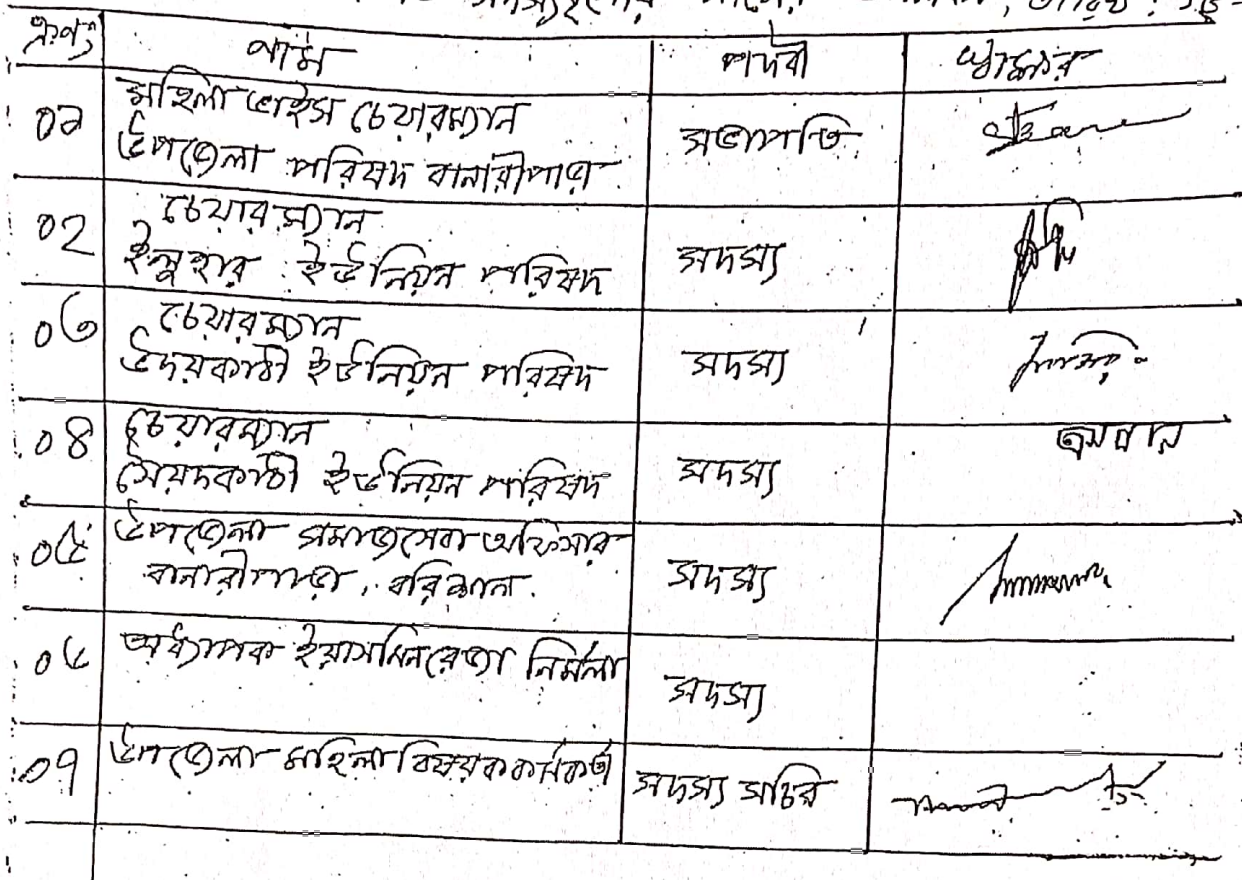 সদস্যবৃন্দের নামের তারিখ:
ক্রঃনং নাম পদবী স্বাক্ষর
০১ মহিলা ভাইস চেয়ারম্যান
উপজেলা পরিষদ বানারীপাড়া সভাপতি
০২ চেয়ারম্যান
ইলুহার ইউনিয়ন পরিষদ সদস্য
০৩ চেয়ারম্যান
উদয়কাঠী ইউনিয়ন পরিষদ সদস্য
০৪ চেয়ারম্যান
সৈয়দকাঠী ইউনিয়ন পরিষদ সদস্য
০৫ উপজেলা সমাজসেবা অফিসার
বানারীপাড়া, বরিশাল. সদস্য
০৬ অধ্যাপক ইয়াসমিনরেজা নির্মলা সদস্য
০৭ উপজেলা মহিলা বিষয়ক কর্মকর্তা সদস্য সচিব